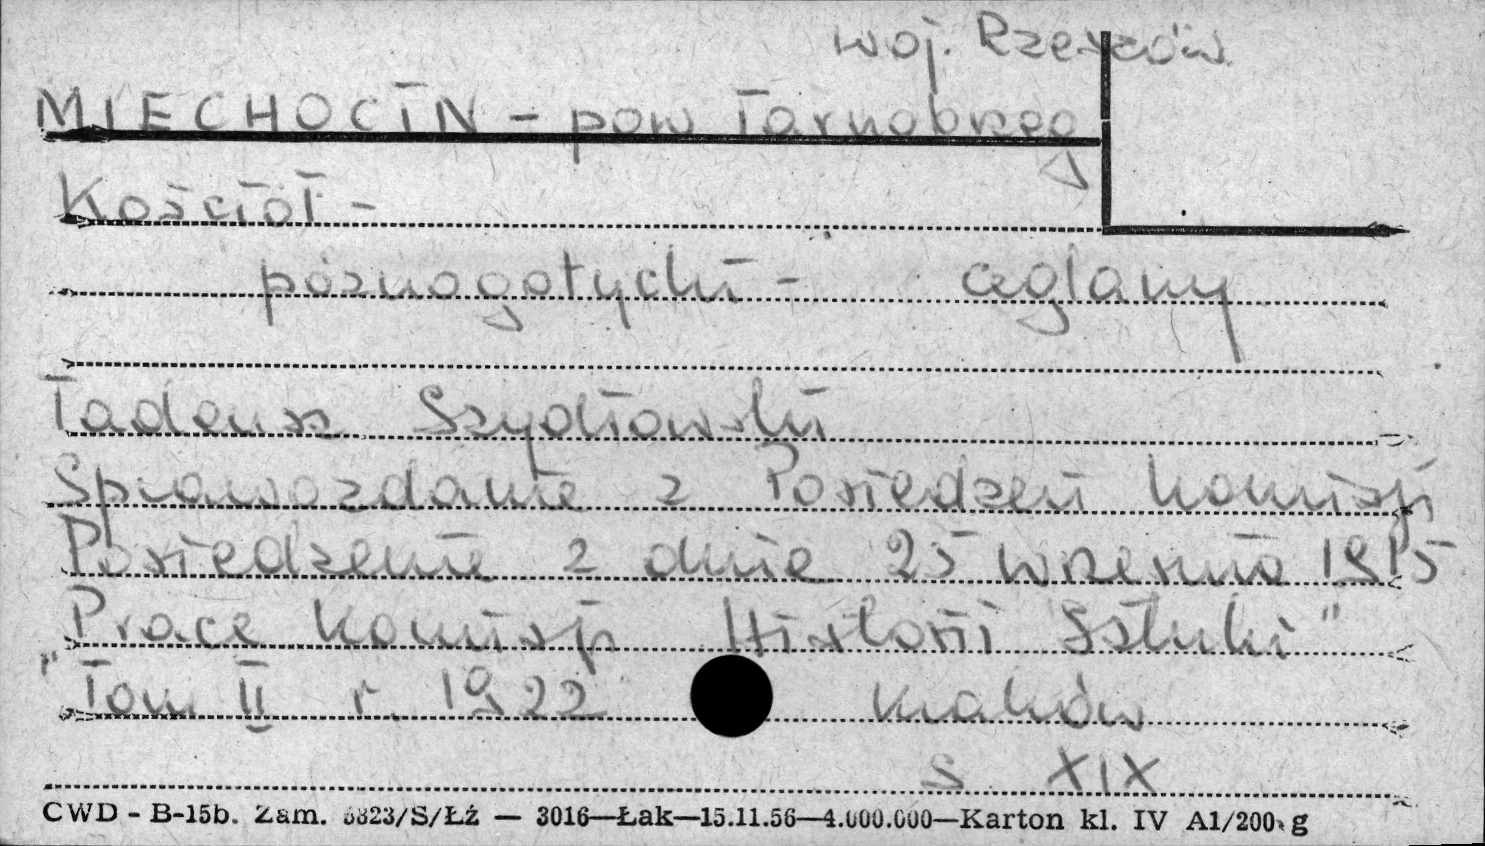 woj. Rzeszów
MIECHOCIN - pow Tarnobrzeg
Kościół -
późnogotycki - ceglany
Tadeusz Szydłowski
Sprawozdanie z Posiedzeń Komisji
Posiedzenie z dnia 25 września 1915
Prace Komisji Historii Sztuki"
"Tom II r. 1922 Kraków
s XIX
CWD - B-15b. Zam. 6823/S/Łź — 3016—Łak—15.11.56—4.000.000—Karton kl. IV A1/200 g